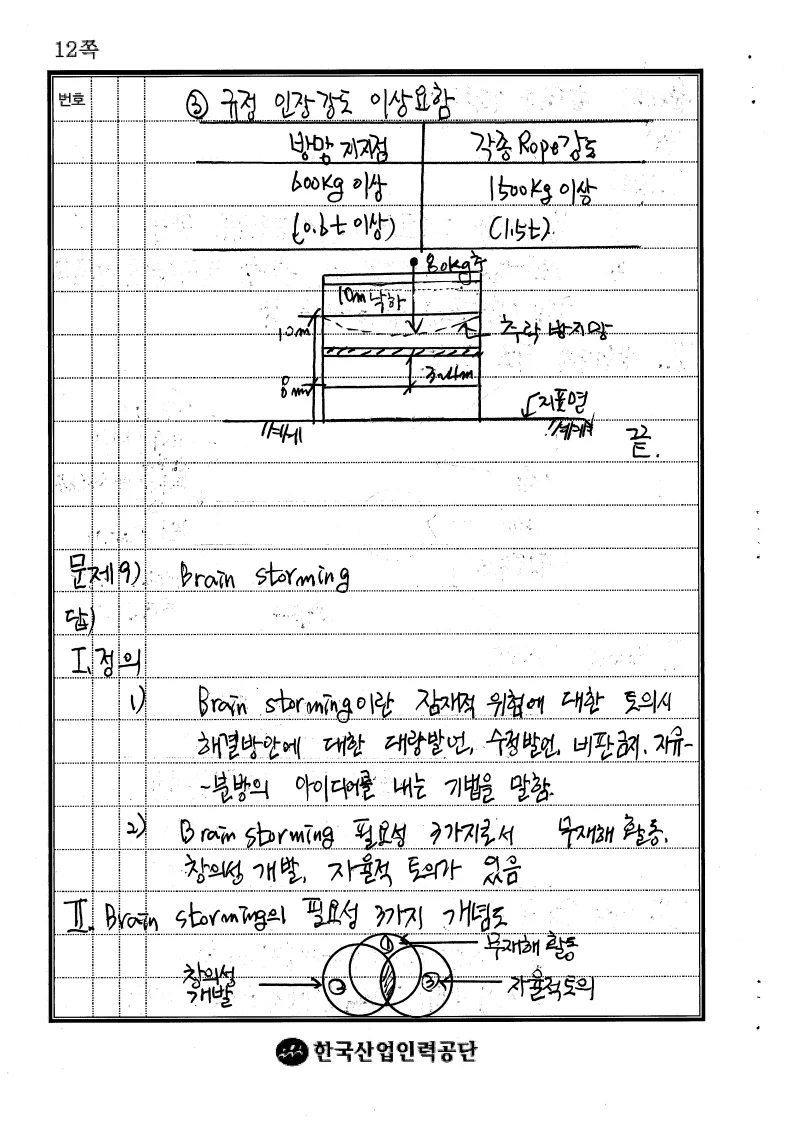 12쪽
번호
③ 규정 인장강도 이상요함
방망 지지점 각종 Rope강도
600kg 이상 1500kg 이상
(0.6t 이상) (1.5t)
80kg추
10m 낙하
10m 추락방지망
3~4m
8m
지표면
끝.
문제9) Brain storming
답)
I. 정의
1) Brain storming이란 잠재적 위험에 대한 토의시
해결방안에 대한 대량발언, 수정발언, 비판금지, 자유-
-분방의 아이디어를 내는 기법을 말함.
2) Brain storming 필요성 3가지로서 무재해 활동,
창의성 개발, 자율적 토의가 있음
II. Brain storming의 필요성 3가지 개념도
① 무재해 활동
창의성
개발 ② ③ 자율적토의
한국산업인력공단